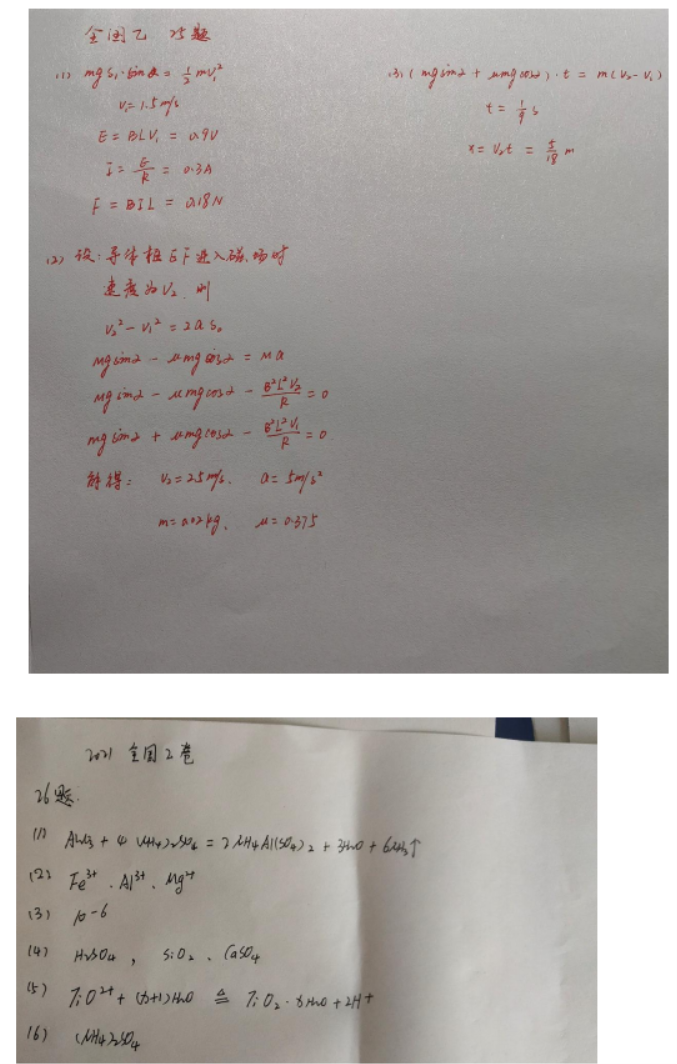 全国乙 25题
(1) mg s₁·sinα = ½mv₁²
v₁=1.5m/s
E = BLV₁ = 0.9V
I = E/R = 0.3A
F = BIL = 0.18N
(2) 设:导体棍EF进入磁场时
速度为V₂. 则
v₂² - v₁² = 2as₀
Mgsinα - μmgcosα = Ma
Mgsinα - μmgcosα - B²L²V₂/R = 0
mgsinα + μmgcosα - B²L²V₁/R = 0.
解得: V₂=2.5m/s. a=5m/s²
m=0.02kg. μ=0.375
(3) (mgsinα + μmgcosα)·t = m(V₂-V₁)
t = 1/9 s
x = V₂t = 5/18 m
2021 全国2卷
26题.
(1) Al₂O₃ + 4(NH₄)₂SO₄ = 2NH₄Al(SO₄)₂ + 3H₂O + 6NH₃↑
(2) Fe³⁺. Al³⁺. Mg²⁺
(3) 10-6
(4) H₂SO₄, SiO₂. CaSO₄
(5) TiO²⁺ + (x+1)H₂O ≜ TiO₂·xH₂O + 2H⁺
(6) (NH₄)₂SO₄